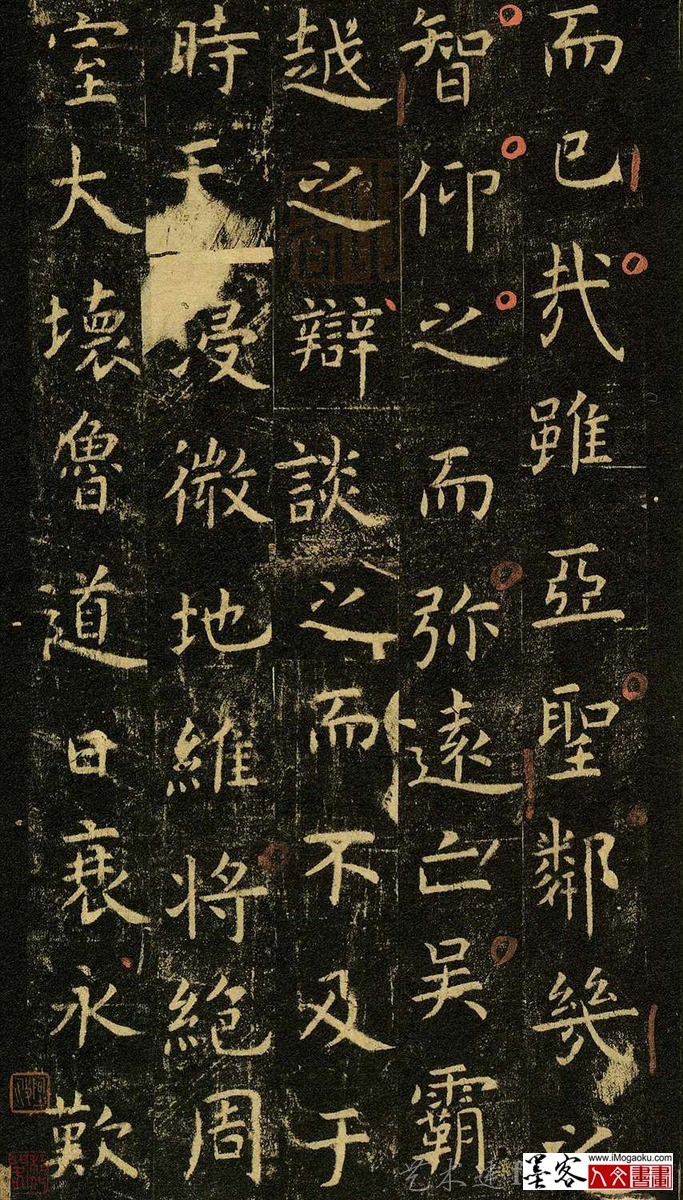 而已哉雖亞聖鄰幾之
智仰之而弥遠亡吴霸
越之辯談之而不及于
時天浸微地維將絶周
室大壞魯道日衰永歎
墨客
www.iMogaoku.com
人文書畫